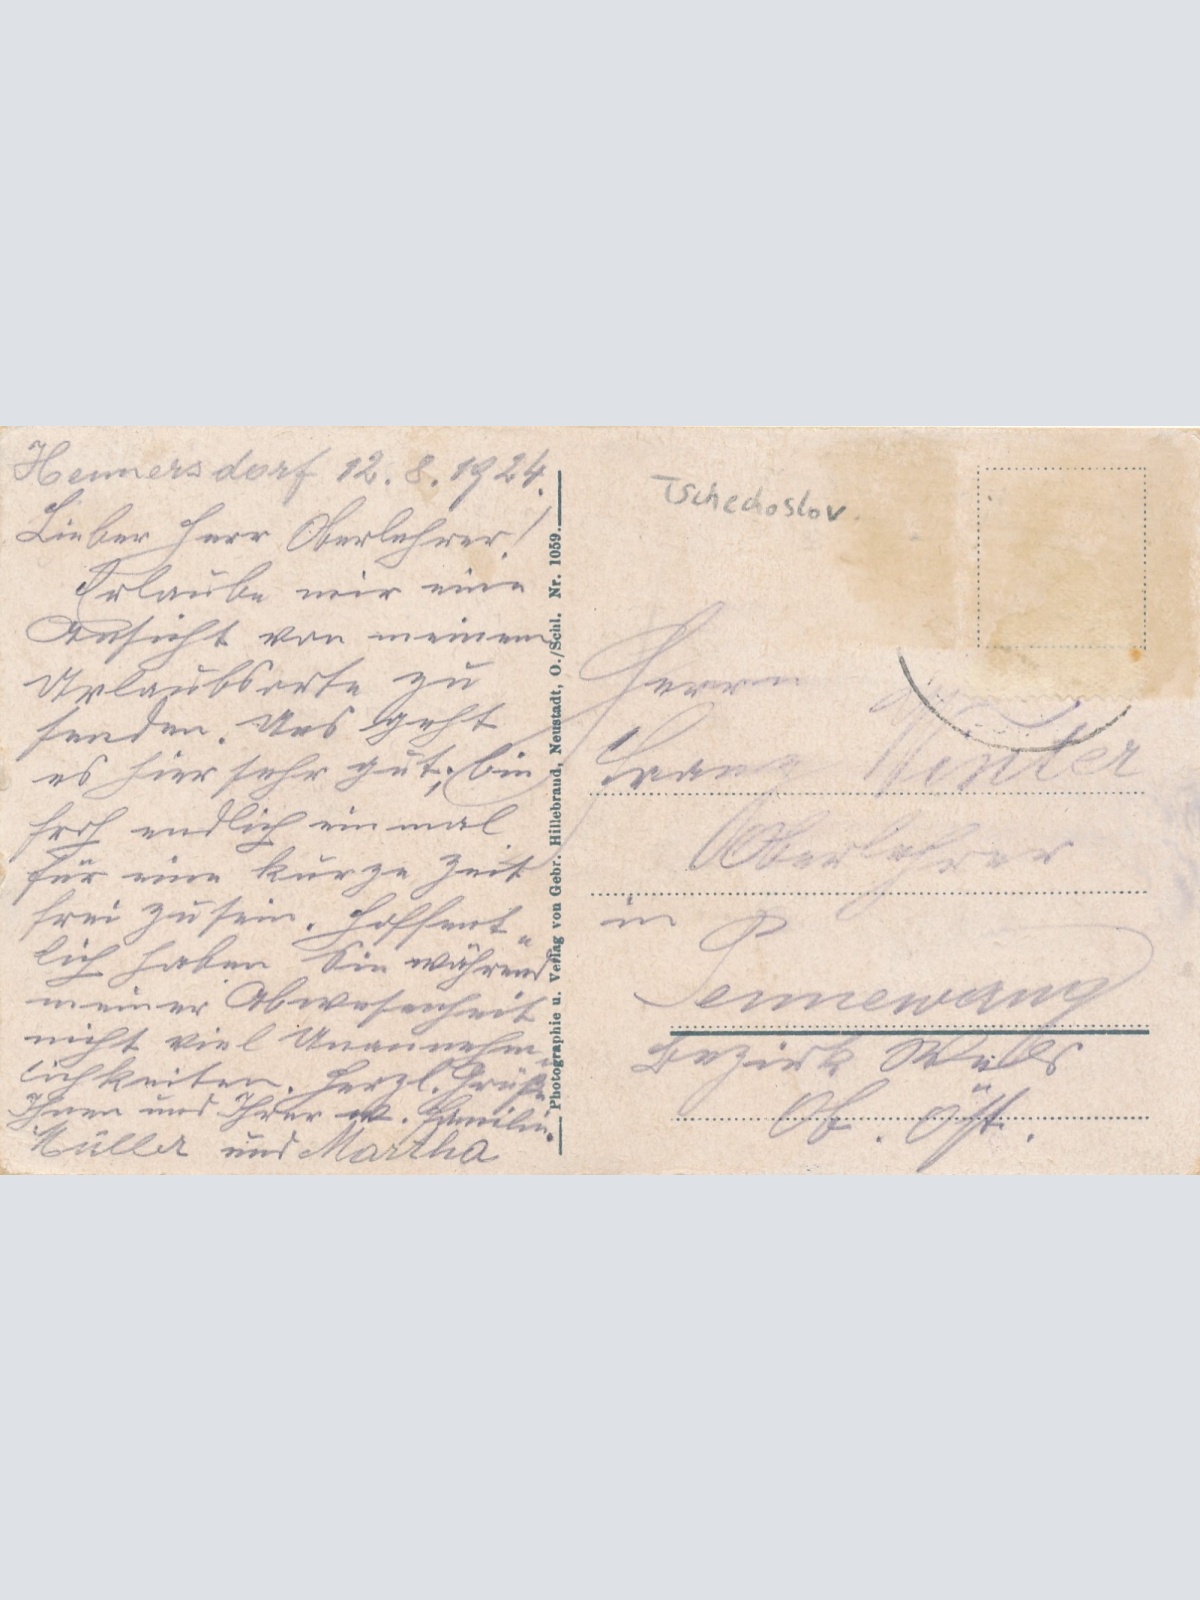 Hennersdorf 12. 8. 1924.
Lieber Herr Oberlehrer!
Erlaube mir eine
Ansicht von meinem
Urlaubsorte zu
senden. Uns geht
es hier sehr gut; bin
froh endlich einmal
für eine kurze Zeit
frei zu sein. Hoffent„
lich haben Sie während
meiner Abwesenheit
nicht viel Unannehm„
lichkeiten. Herzl. Grüße
Ihnen und Ihrer w. Familie.
Müller und Martha
Photographie u. Verlag von Gebr. Hillebrand, Neustadt, O./Schl. Nr. 1059.
Tschechoslov.
Herrn
Franz Winter
Oberlehrer
in
Pennewang
Bezirk Wels
Ob. Öst.